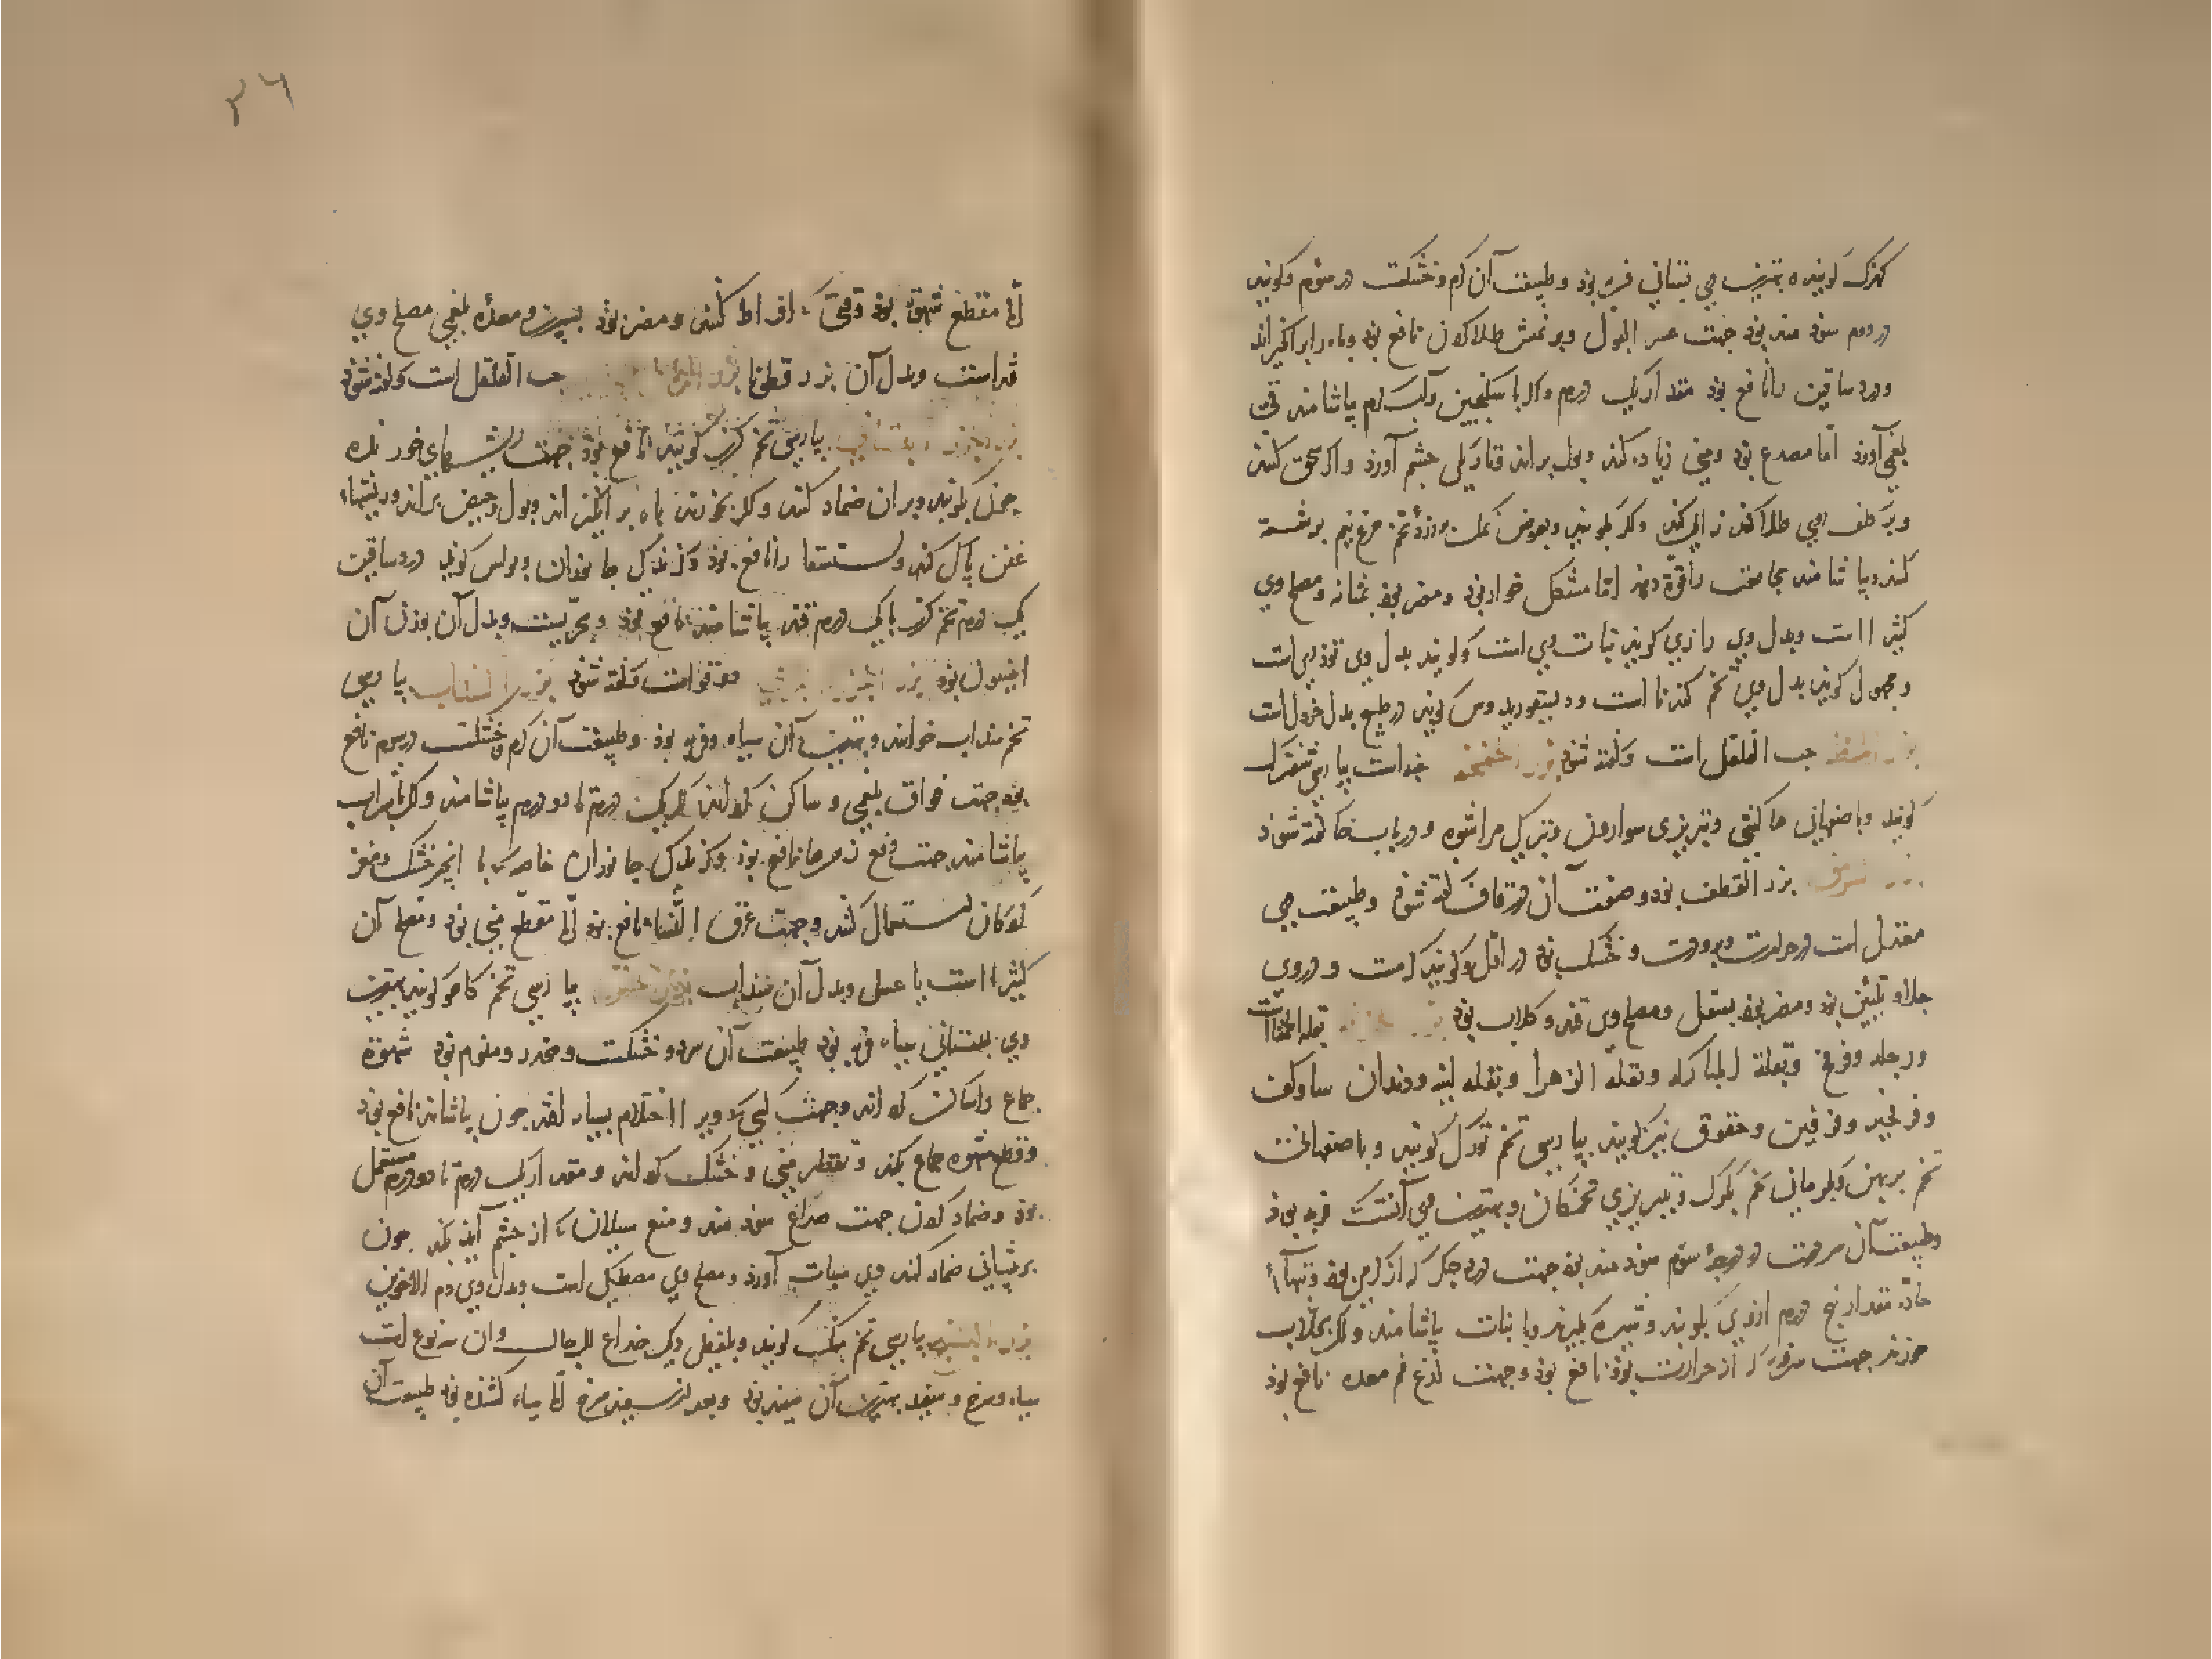 کهزک کویند و بهترین وی بستانی فربه بود و طبیعت آن کرم و خشکست در سوم و کویند
در دوم سود مند بود جهت عسر البول و بر نمش طلا کردن نافع بود و باه را برانکیزاند
و درد ساقین را نافع بود مقدار یک درم و اکر با سکنجبین و آب کرم بیاشامند قی
بلغمی آورد اما مصدع بود و منی زیاده کند و بول براند و تاریکی چشم آورد و اکر سحق کنند
و بر کلف وی طلا کنند زایل کند و اکر بکوبند و بعوض نمک بر زردهٔ تخم مرغ نیم برشت
کنند و بیاشامند مجامعت را قوة دهد اما مشکل خوار بود و مضر بود بمثانه و مصلح وی
کثیرا است و بدل وی رازی کوید نبات وی است و کویند بدل وی تودری است
و مجهول کوید بدل وی تخم کندنا است و دیسقوریدوس کوید در طبع بدل خردل است
حب القلقل است و کفته شود بزر الخمخم خبه است بپارسی شفترک
کویند و باصفهانی خاکشی و تبریزی سواروان و ترکی مراشوه و در باب خا کفته شود
بزر سرمق بزر القطف بود و صفت آن در قاف کفته شود و طبیعت وی
معتدل است در حرارت و برودت و خشک بود در اول و کویند کرمست و در وی
جلا و تلیین بود و مضر بود بسفل و مصلح وی قند و کلاب بود بقلة الحمقا است
و رجله و فرفخ و بقلة المبارکه و بقلة الزهرا و بقله لینه و دندان ساو کفت
و فرفجیر و فرفین و حقوق نیز کویند بپارسی تخم تورک کویند و باصفهانی
تخم بربهن و بکرمانی تخم بکرک و تبریزی تخمکان و بهترین وی آنست که فربه بود
و طبیعت آن سردست در درجهٔ سوم سود مند بود جهت درد جکر که از کرمی بود و تبهاء
حاده مقدار پنج درم از وی بکوبند و شیره بکیرند و با نبات بیاشامند و اکر بجلاب
خورند جهت سرفه که از حرارت بود نافع بود و جهت لذع فم معده نافع بود
٣٦
اما مقطع شهوة بود وقتی که افراط کنند و مضر بود بسپرز و معده بلغمی مصلح وی
قند است و بدل آن بزر قطونا حب القلقل است و کفته شود
بپارسی تخم کزر کویند نافع بود جهت ریشهای خورنده
چون بکوبند و بران ضماد کنند و اکر بخورند باه برانکیزاند و بول و حیض براند و ریشهاء
عفن پاک کند و استسقا را نافع بود و کزیدکی جانوران و بولس کوید درد ساقین
یک درم تخم کزر با یک درم قند بیاشامند نافع بود و مجربست و بدل آن بوزن آن
انیسون بود دوقو است و کفته شود بزر السذاب بپارسی
تخم سداب خوانند و بهترین آن سیاه و فربه بود و طبیعت آن کرم و خشکست در سوم نافع
بود جهت فواق بلغمی و ساکن کرداند اکر یک درم تا دو درم بیاشامند و اکر با شراب
بیاشامند جهت دفع زهرها نافع بود و کزیدکی جانوران خاصه که با انجیر خشک و مغز
کوزکان استعمال کنند و جهت عرق النساء نافع بود اما مقطع منی بود و مصلح آن
کثیرا است یا عسل و بدل آن سداب بپارسی تخم کاهو کویند بهترین
وی بستانی سیاه فربه بود طبیعت آن سرد و خشکست و مخدر و منوم بود شهوة
جماع را ساکن کرداند و جهت کسی که ویرا احتلام بسیار افتد چون بیاشامند نافع بود
و قطع شهوه جماع بکند و تقطیر منی و خشک کرداند و مقدار یک درم تا دو درم مستعمل
بود و ضماد کردن جهت صداع سود مند و منع سیلان که از چشم آید بکند چون
بر پیشانی ضماد کنند وی سبات آورد و مصلح وی مصطکی است و بدل وی دم الاخوین
بزر البنج بپارسی تخم بنک کویند و بلفظی دیکر خداع الرجال و آن سه نوع است
سیاه و سرخ و سفید بهترین آن سفید بود و بعد از سفید سرخ اما سیاه کشنده بود طبیعت آن